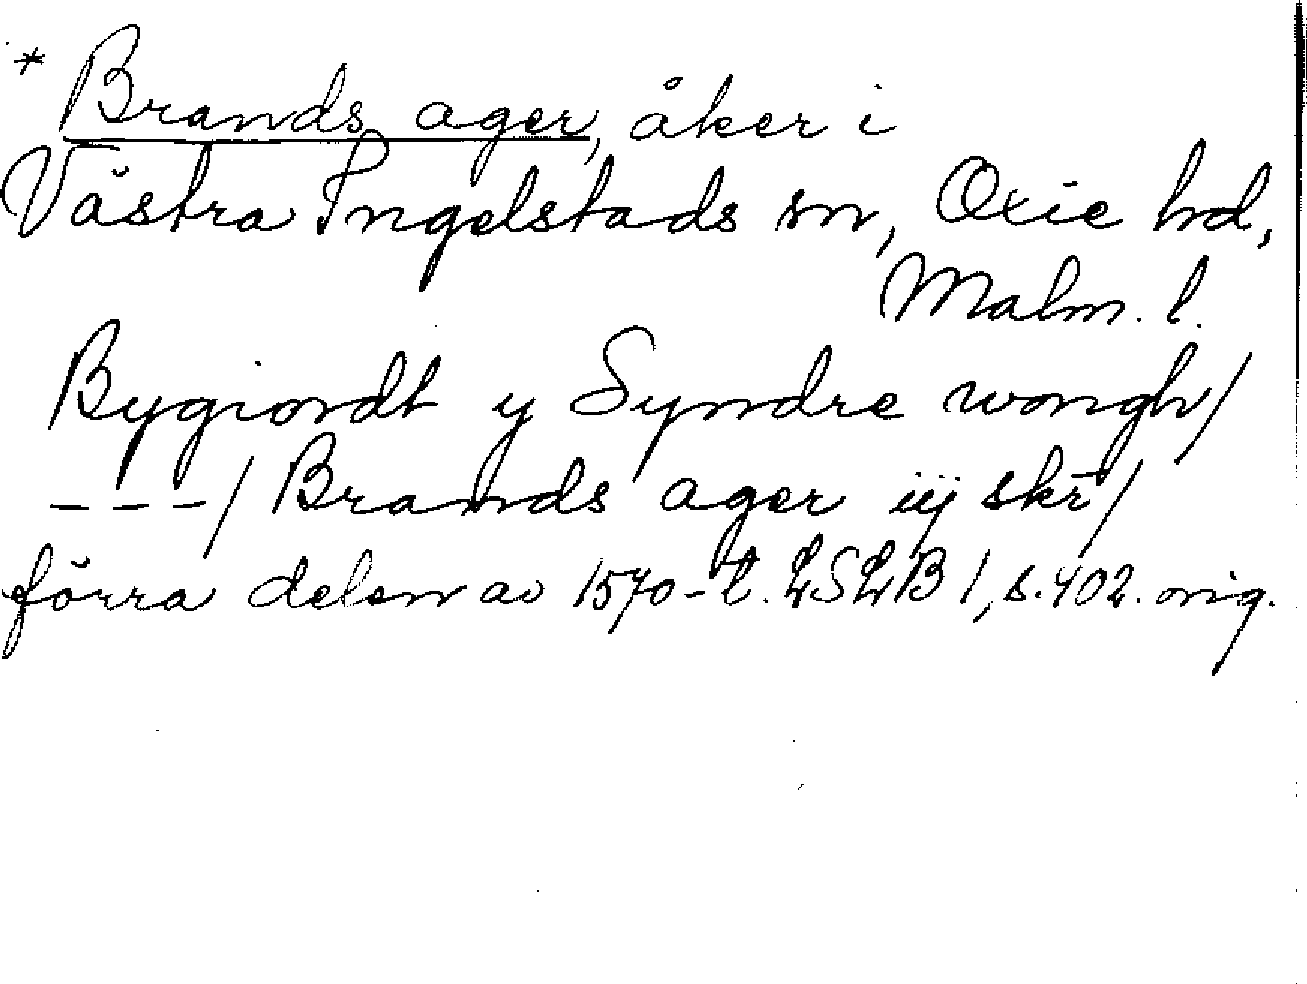 * Brands ager, åker i
Västra Ingelstads sn, Oxie hd,
Malm. l.
Bygiordt y Syndre wongh/
---/ Brands ager iij skr̄/
förra delen av 1570-t. LSLB 1, s. 402. orig.